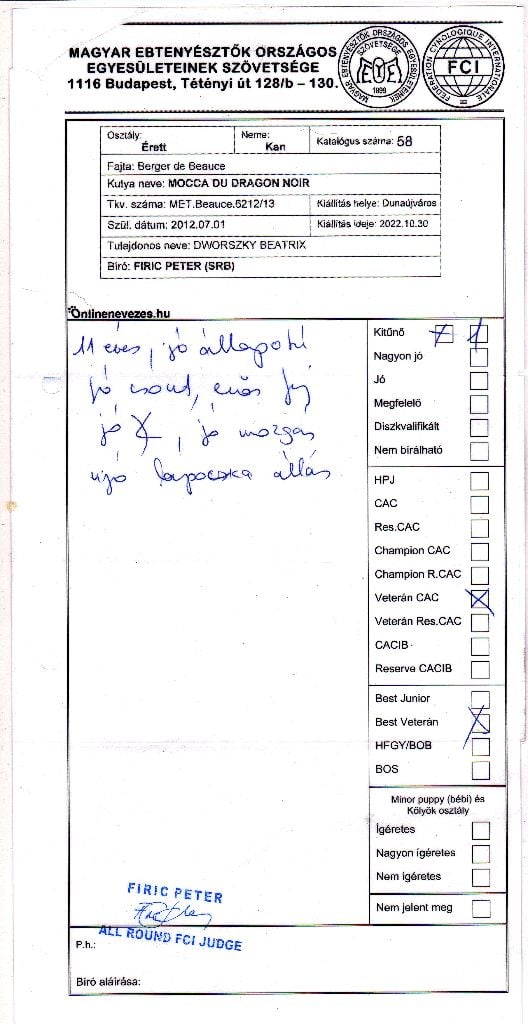 MAGYAR EBTENYÉSZTŐK ORSZÁGOS
EGYESÜLETEINEK SZÖVETSÉGE
1116 Budapest, Tétényi út 128/b – 130.
MAGYAR EBTENYÉSZTŐK ORSZÁGOS EGYESÜLETEINEK SZÖVETSÉGE
MEOE
1899
FEDERATION CYNOLOGIQUE INTERNATIONALE
FCI
Osztály:
Érett
Neme:
Kan
Katalógus száma: 58
Fajta: Berger de Beauce
Kutya neve: MOCCA DU DRAGON NOIR
Tkv. száma: MET.Beauce.6212/13
Kiállítás helye: Dunaújváros
Szül. dátum: 2012.07.01
Kiállítás ideje: 2022.10.30
Tulajdonos neve: DWORSZKY BEATRIX
Bíró: FIRIC PETER (SRB)
Onlinenevezes.hu
11 éves, jó állapotú
jó csont, erős fej
jó, jó mozgás
lapocska állás
Kitűnő 1
Nagyon jó
Jó
Megfelelő
Diszkvalifikált
Nem bírálható
HPJ
CAC
Res.CAC
Champion CAC
Champion R.CAC
Veterán CAC
Veterán Res.CAC
CACIB
Reserve CACIB
Best Junior
Best Veterán
HFGY/BOB
BOS
Minor puppy (bébi) és
Kölyök osztály
Ígéretes
Nagyon ígéretes
Nem ígéretes
Nem jelent meg
FIRIC PETER
ALL ROUND FCI JUDGE
P.h.:
Bíró aláírása: